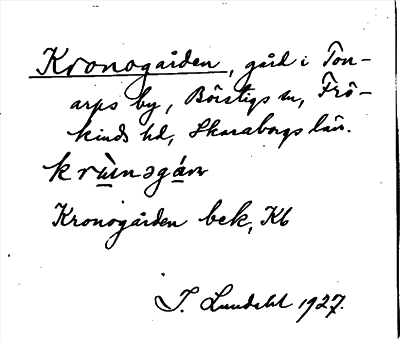 Kronogården, gård i Ton-
arps by, Börstigs sn, Frö-
kinds hd, Skaraborgs län.
krùnəgán
Kronogården bek, Kb
J. Lundahl 1927.